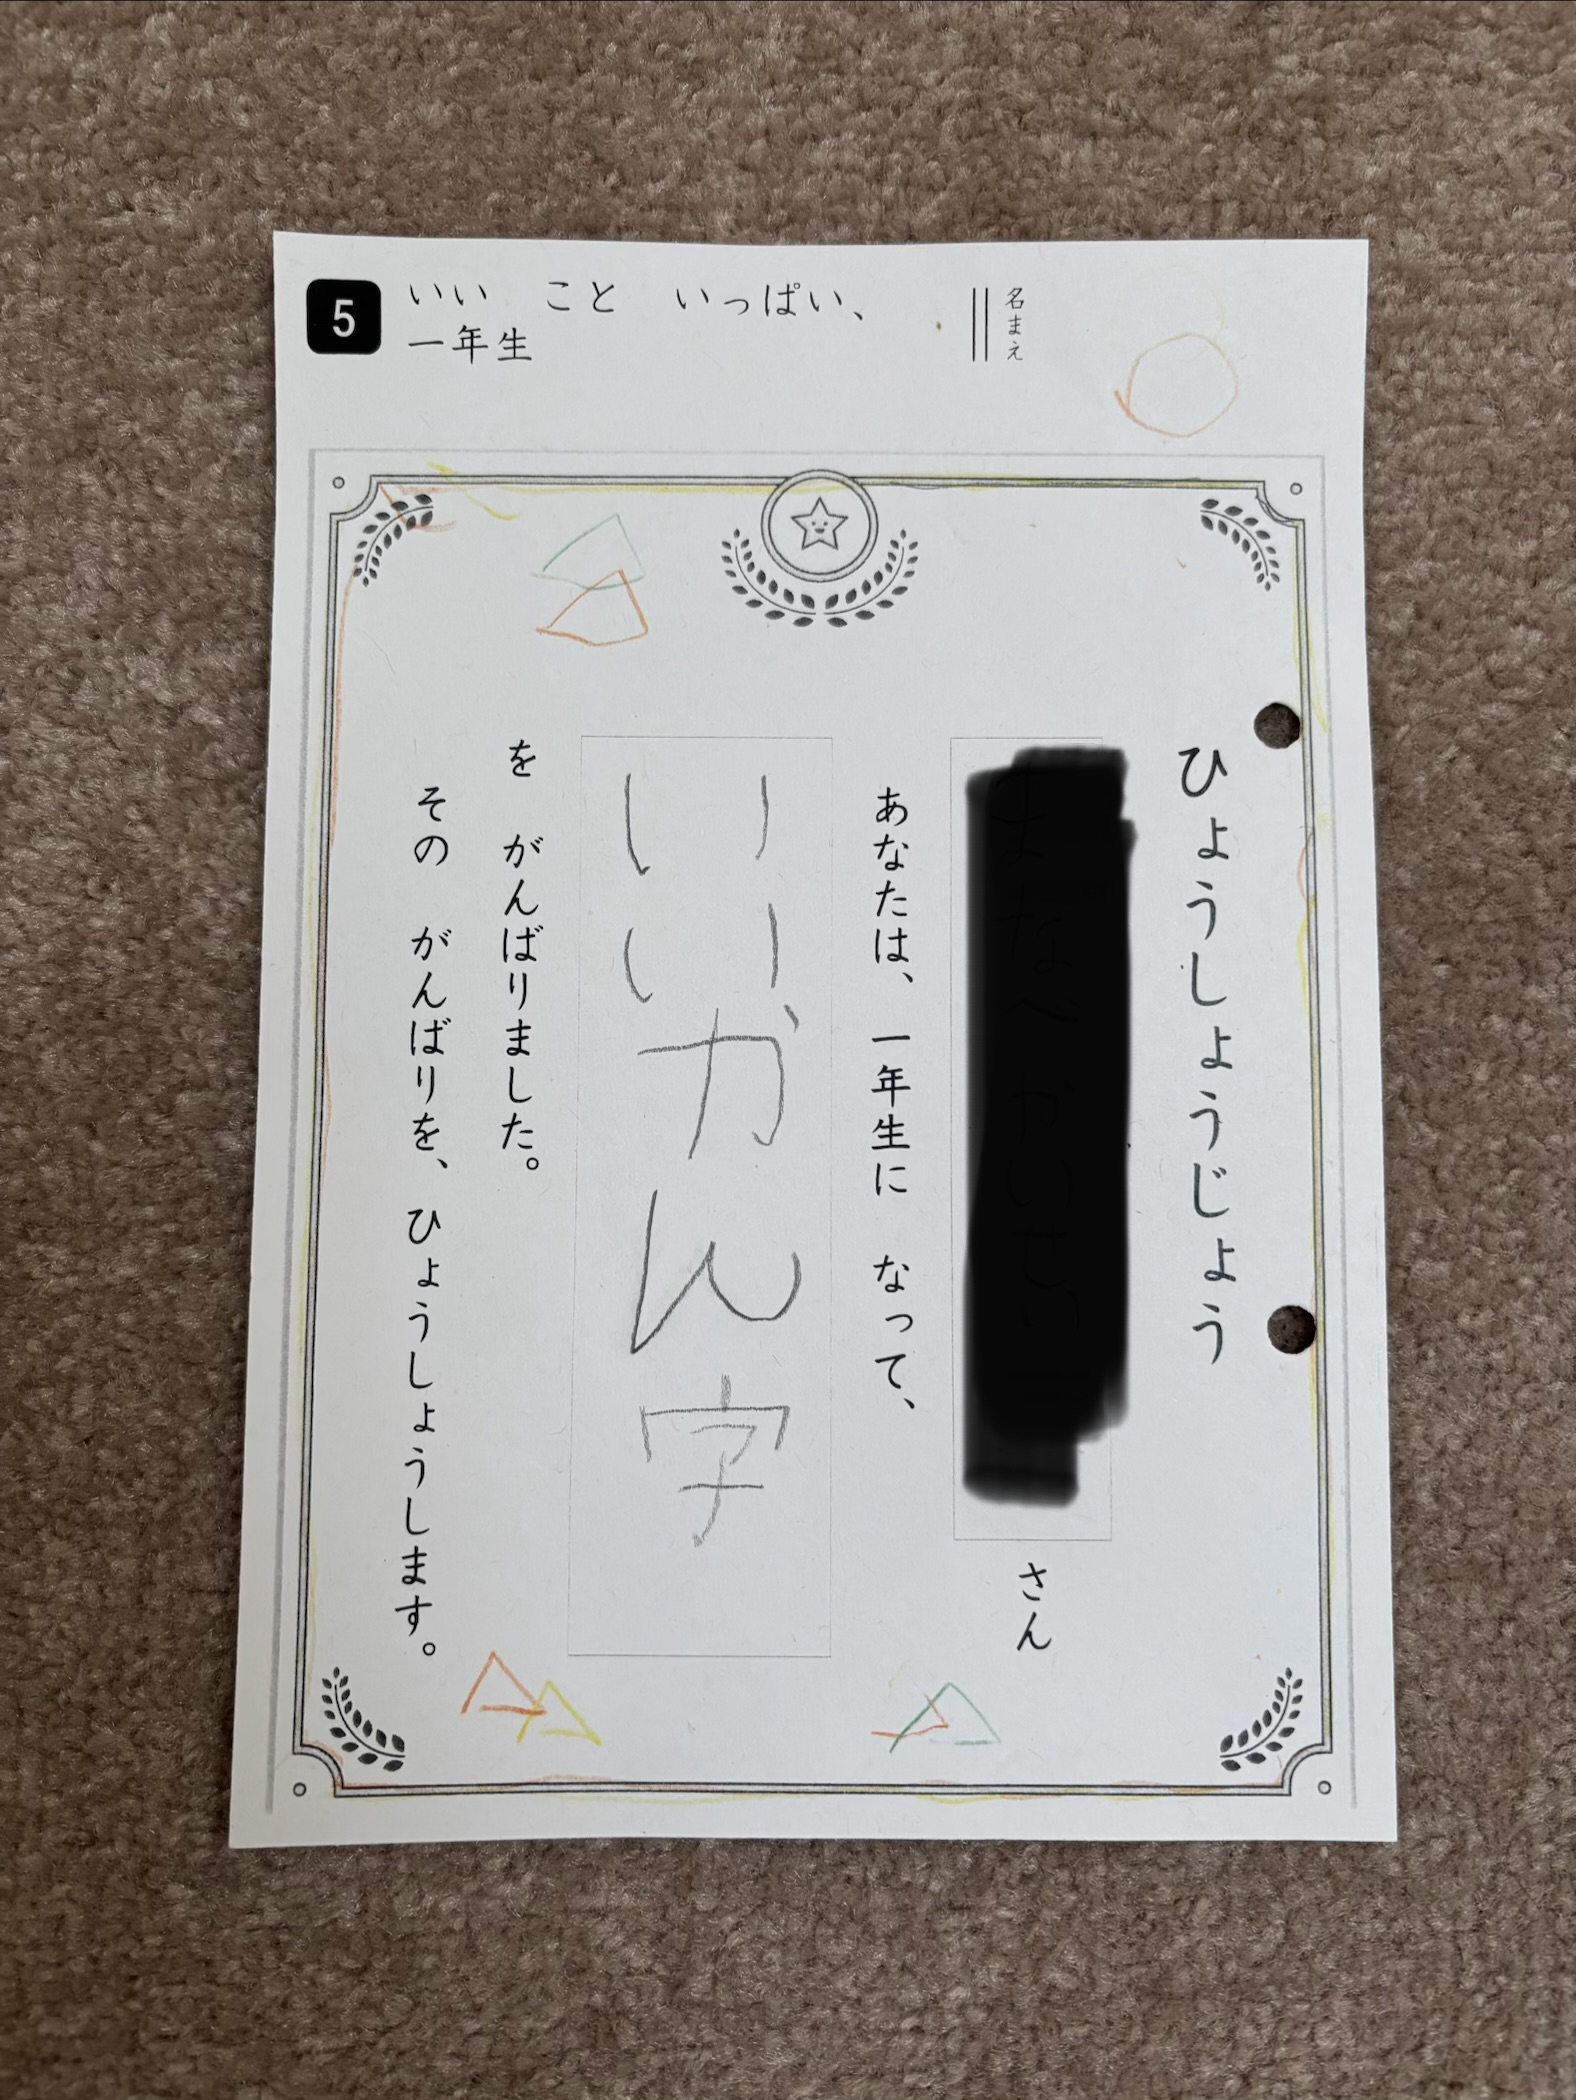 5
いい こと いっぱい、
一年生
名まえ
ひょうしょうじょう
さん
あなたは、一年生に なって、
いいかん字
を がんばりました。
その がんばりを、ひょうしょうします。